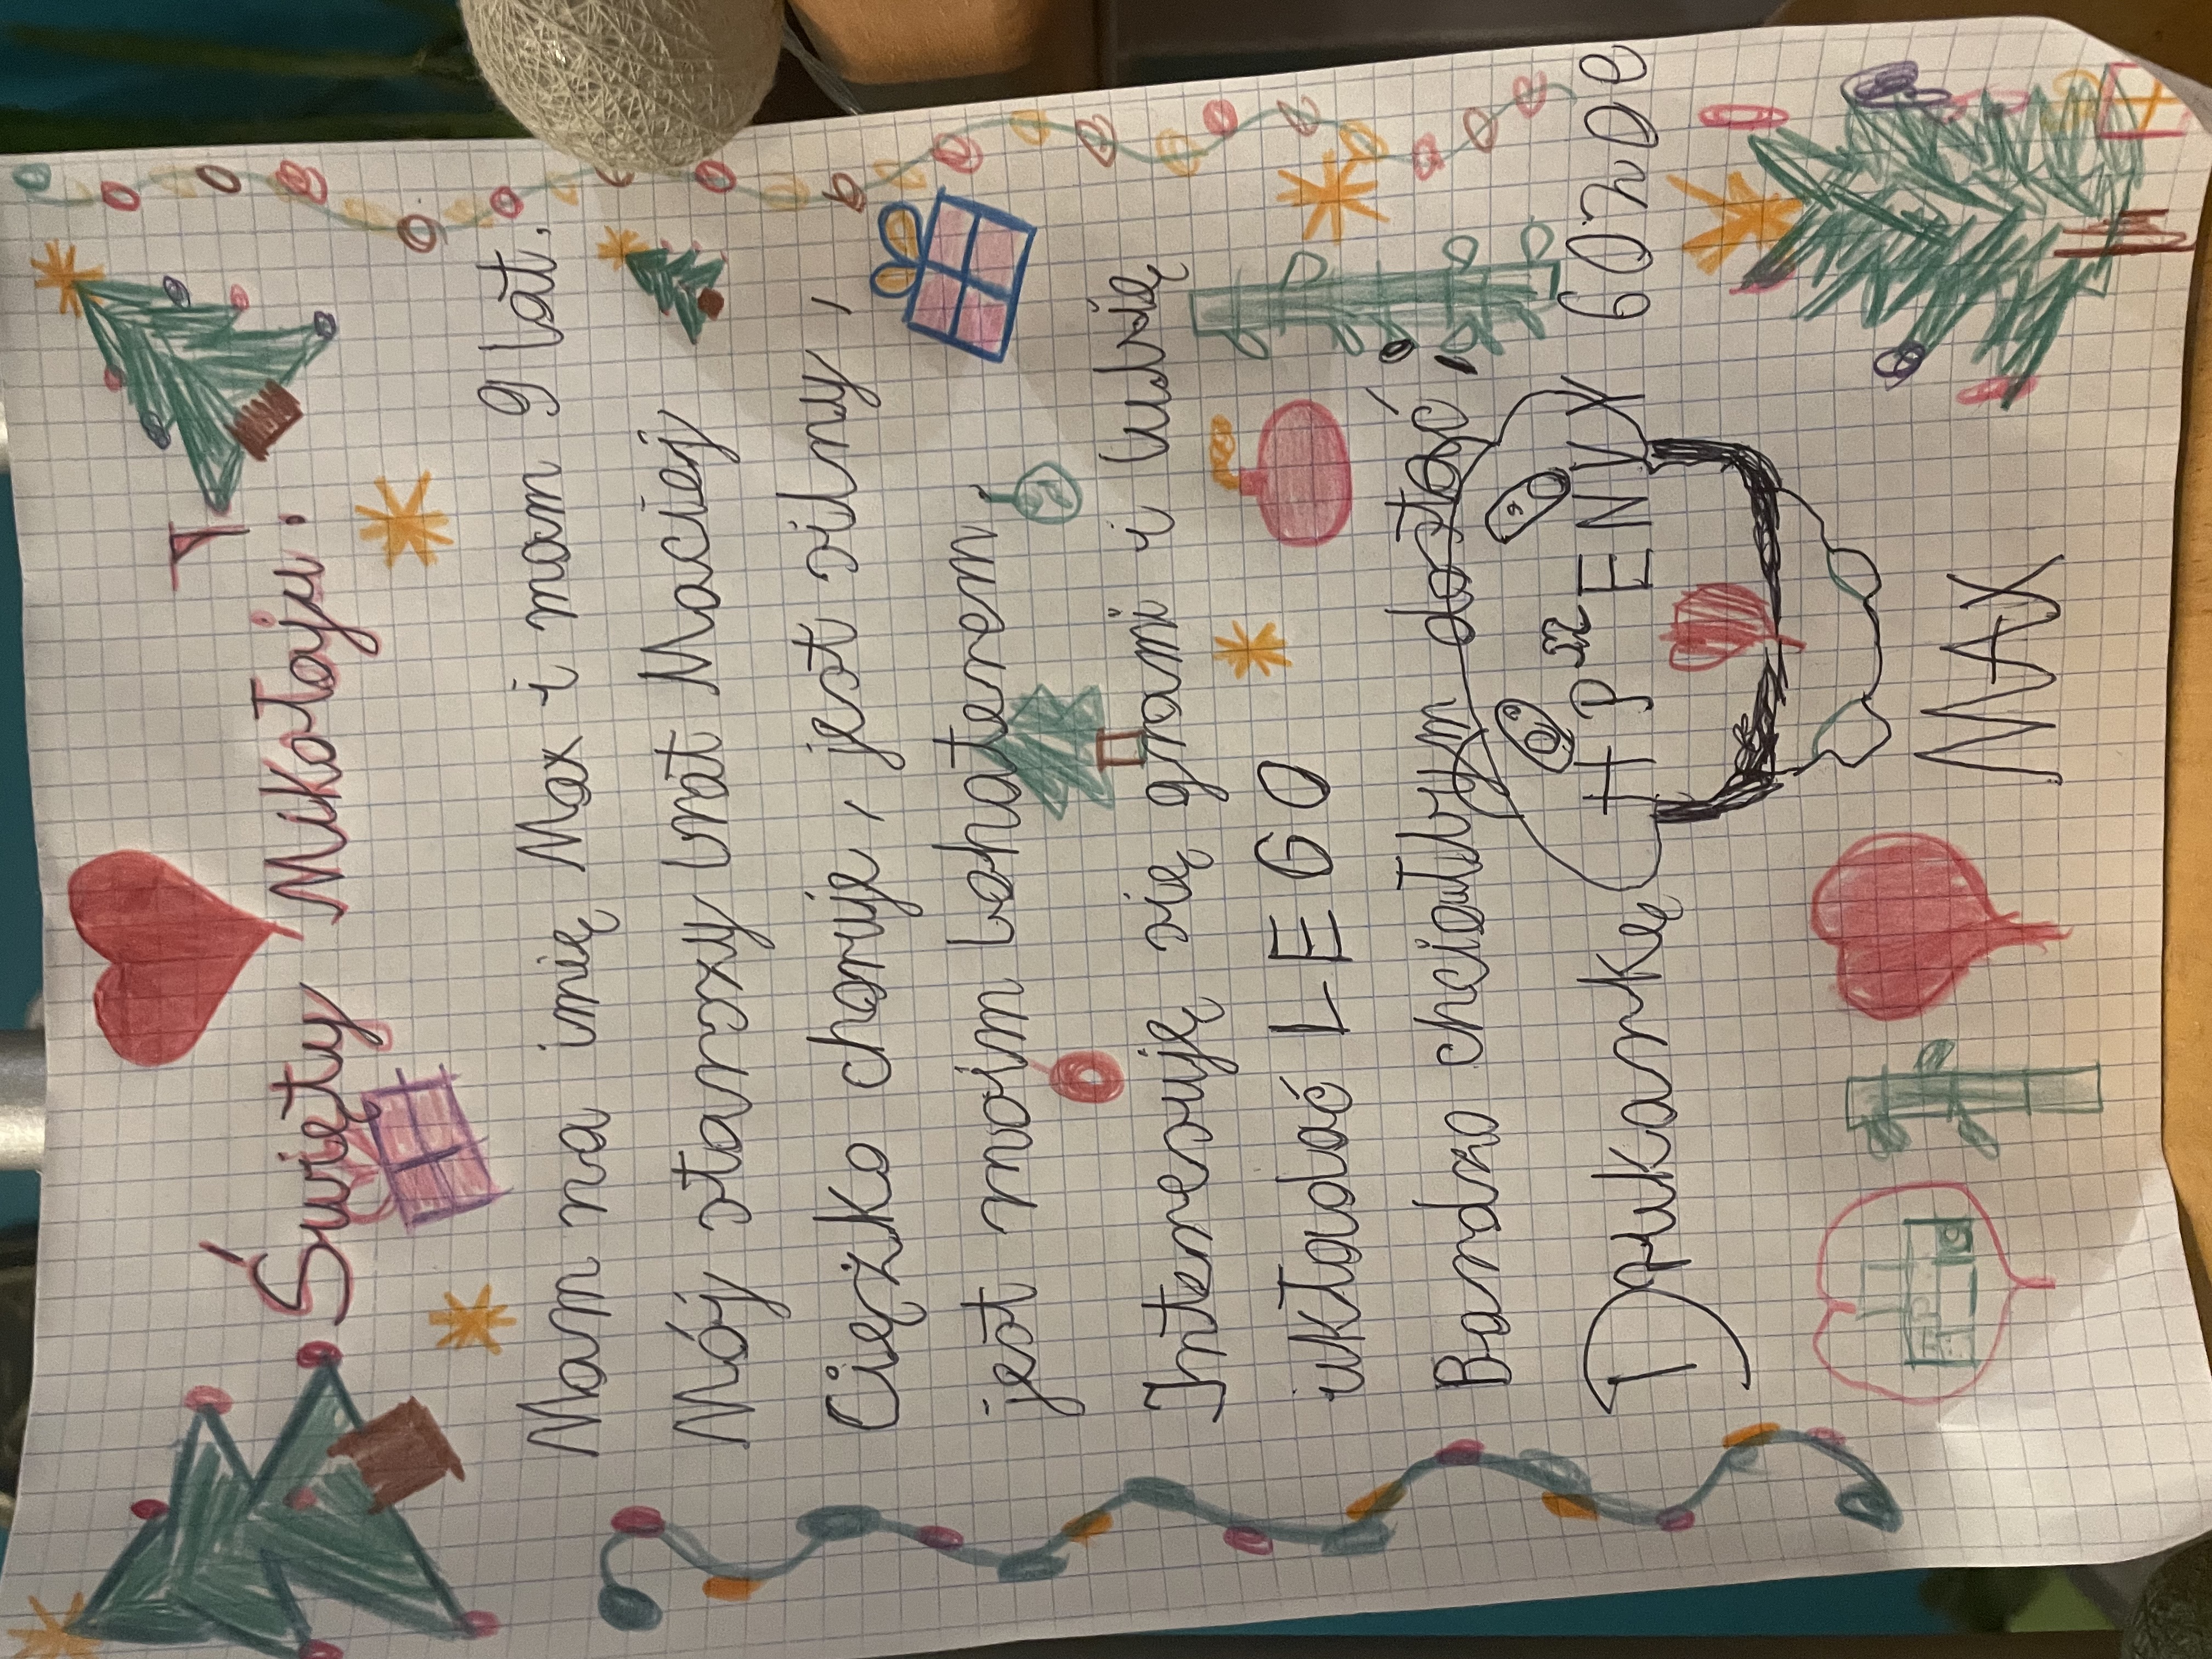 Święty Mikołaju.
Mam na imię Max i mam 9 lat.
Mój starszy brat Maciej
Ciężko choruje, jest silny,
jest moim bohaterem.
Interesuję się grami i lubię
układać LEGO
Bardzo chciałbym dostać,
Drukarkę HP ENVY 6020e
MAX